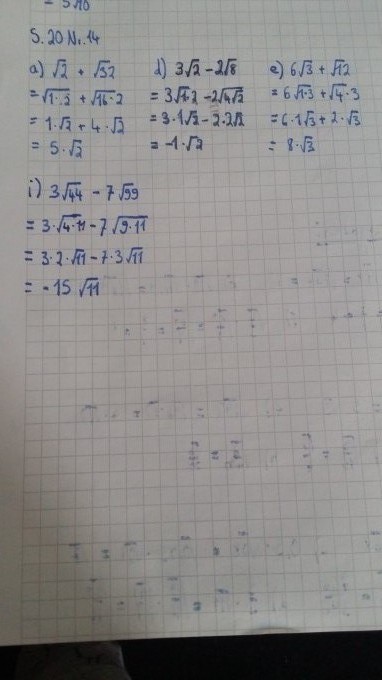 = 5√10
S. 20 Nr. 14
a) √2 + √32
= √1·2 + √16·2
= 1·√2 + 4·√2
= 5·√2
d) 3√2 - 2√8
= 3√1·2 - 2√4√2
= 3·1√2 - 2·2√2
= -1·√2
e) 6√3 + √12
= 6√1·3 + √4·3
= 6·1√3 + 2·√3
= 8·√3
i) 3√44 - 7√99
= 3·√4·11 - 7√9·11
= 3·2·√11 - 7·3√11
= -15 √11